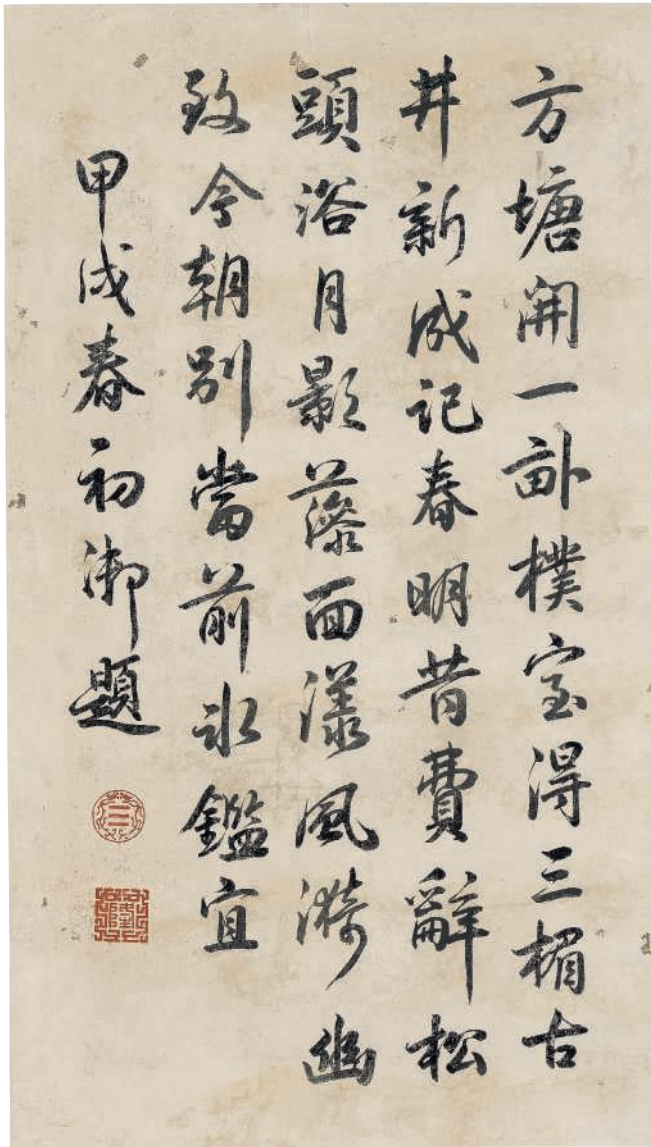 方塘開一畝樸室得三楣古
井新成記春明昔費辭松
頭浴月影藻面漾風漪幽
致今朝別當前冰鑑宜
甲戌春初御題